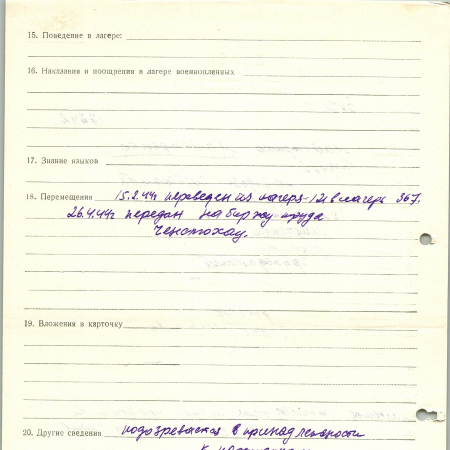 15. Поведение в лагере:
16. Наказания и поощрения в лагере военнопленных
17. Знание языков
18. Перемещения 15.2.44г переведен из лагеря 121 в лагерь 367.
26.4.44г передан на биржу труда
Ченстохау.
19. Вложения в карточку
20. Другие сведения подозревается в принадлежности
к